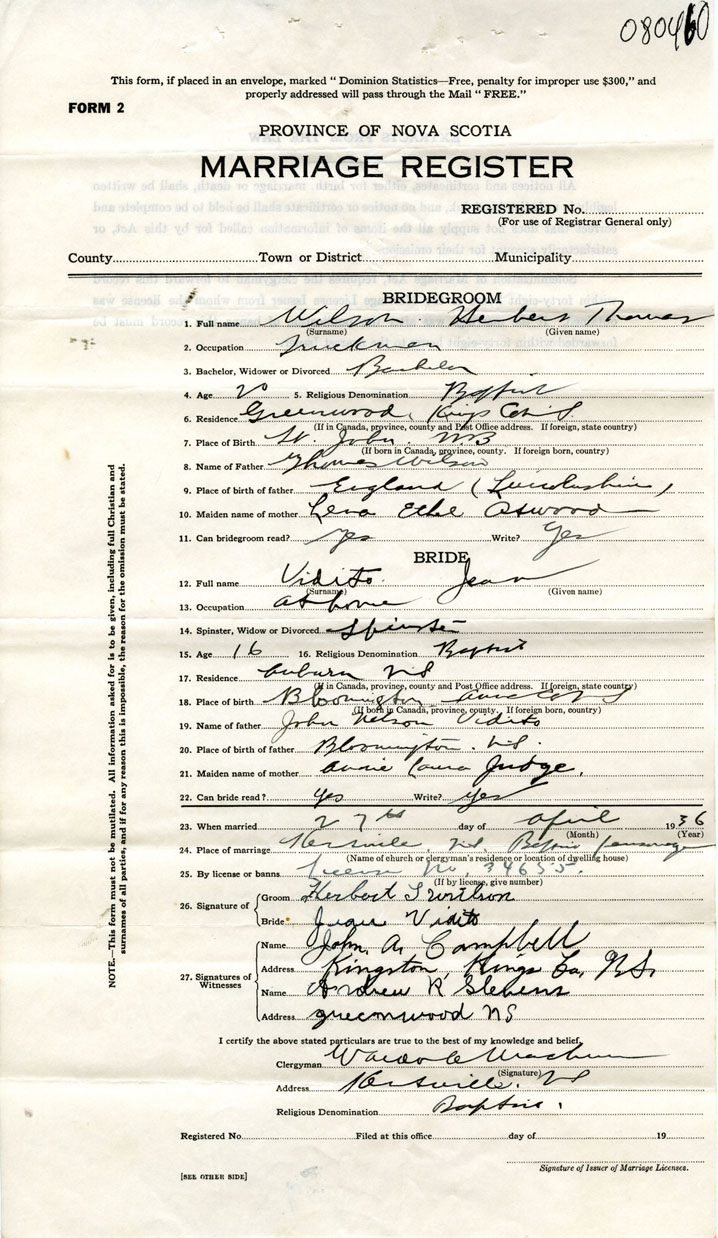 080460
This form, if placed in an envelope, marked " Dominion Statistics—Free, penalty for improper use $300," and
properly addressed will pass through the Mail " FREE."
FORM 2
PROVINCE OF NOVA SCOTIA
MARRIAGE REGISTER
REGISTERED No.
(For use of Registrar General only)
County Town or District Municipality
BRIDEGROOM
1. Full name Wilson Herbert Thomas
(Surname) (Given name)
2. Occupation Truckman
3. Bachelor, Widower or Divorced Bachelor
4. Age 20 5. Religious Denomination Baptist
6. Residence Greenwood, Kings Co NS
(If in Canada, province, county and Post Office address. If foreign, state country)
7. Place of Birth St. John NB
(If born in Canada, province, county. If foreign born, country)
8. Name of Father Thomas Wilson
9. Place of birth of father England (Lincolnshire)
10. Maiden name of mother Lena Ethe Atwood
11. Can bridegroom read? yes Write? Yes
BRIDE
12. Full name Vidito Jean
(Surname) (Given name)
13. Occupation at home
14. Spinster, Widow or Divorced Spinster
15. Age 16 16. Religious Denomination Baptist
17. Residence Auburn NS
(If in Canada, province, county and Post Office address. If foreign, state country)
18. Place of birth Bloomington Anna Co NS
(If born in Canada, province, county. If foreign born, country)
19. Name of father John Nelson Vidito
20. Place of birth of father Bloomington. N.S.
21. Maiden name of mother Annie Laura Judge.
22. Can bride read? yes Write? yes
23. When married 27th day of April 1936
(Month) (Year)
24. Place of marriage NS, Baptist parsonage
(Name of church or clergyman's residence or location of dwelling house)
25. By license or banns License No. 34655.
(If by license, give number)
26. Signature of
Groom Herbert T Wilson
Bride Jean Vidito
27. Signatures of Witnesses
Name John. A. Campbell
Address Kingston, Kings Co, N.S.
Name Andrew R Stevens
Address greenwood NS
I certify the above stated particulars are true to the best of my knowledge and belief.
Clergyman
(Signature)
Address NS
Religious Denomination Baptist.
Registered No. Filed at this office day of 19
Signature of Issuer of Marriage Licenses.
[SEE OTHER SIDE]
NOTE.—This form must not be mutilated. All information asked for is to be given, including full Christian and
surnames of all parties, and if for any reason this is impossible, the reason for the omission must be stated.